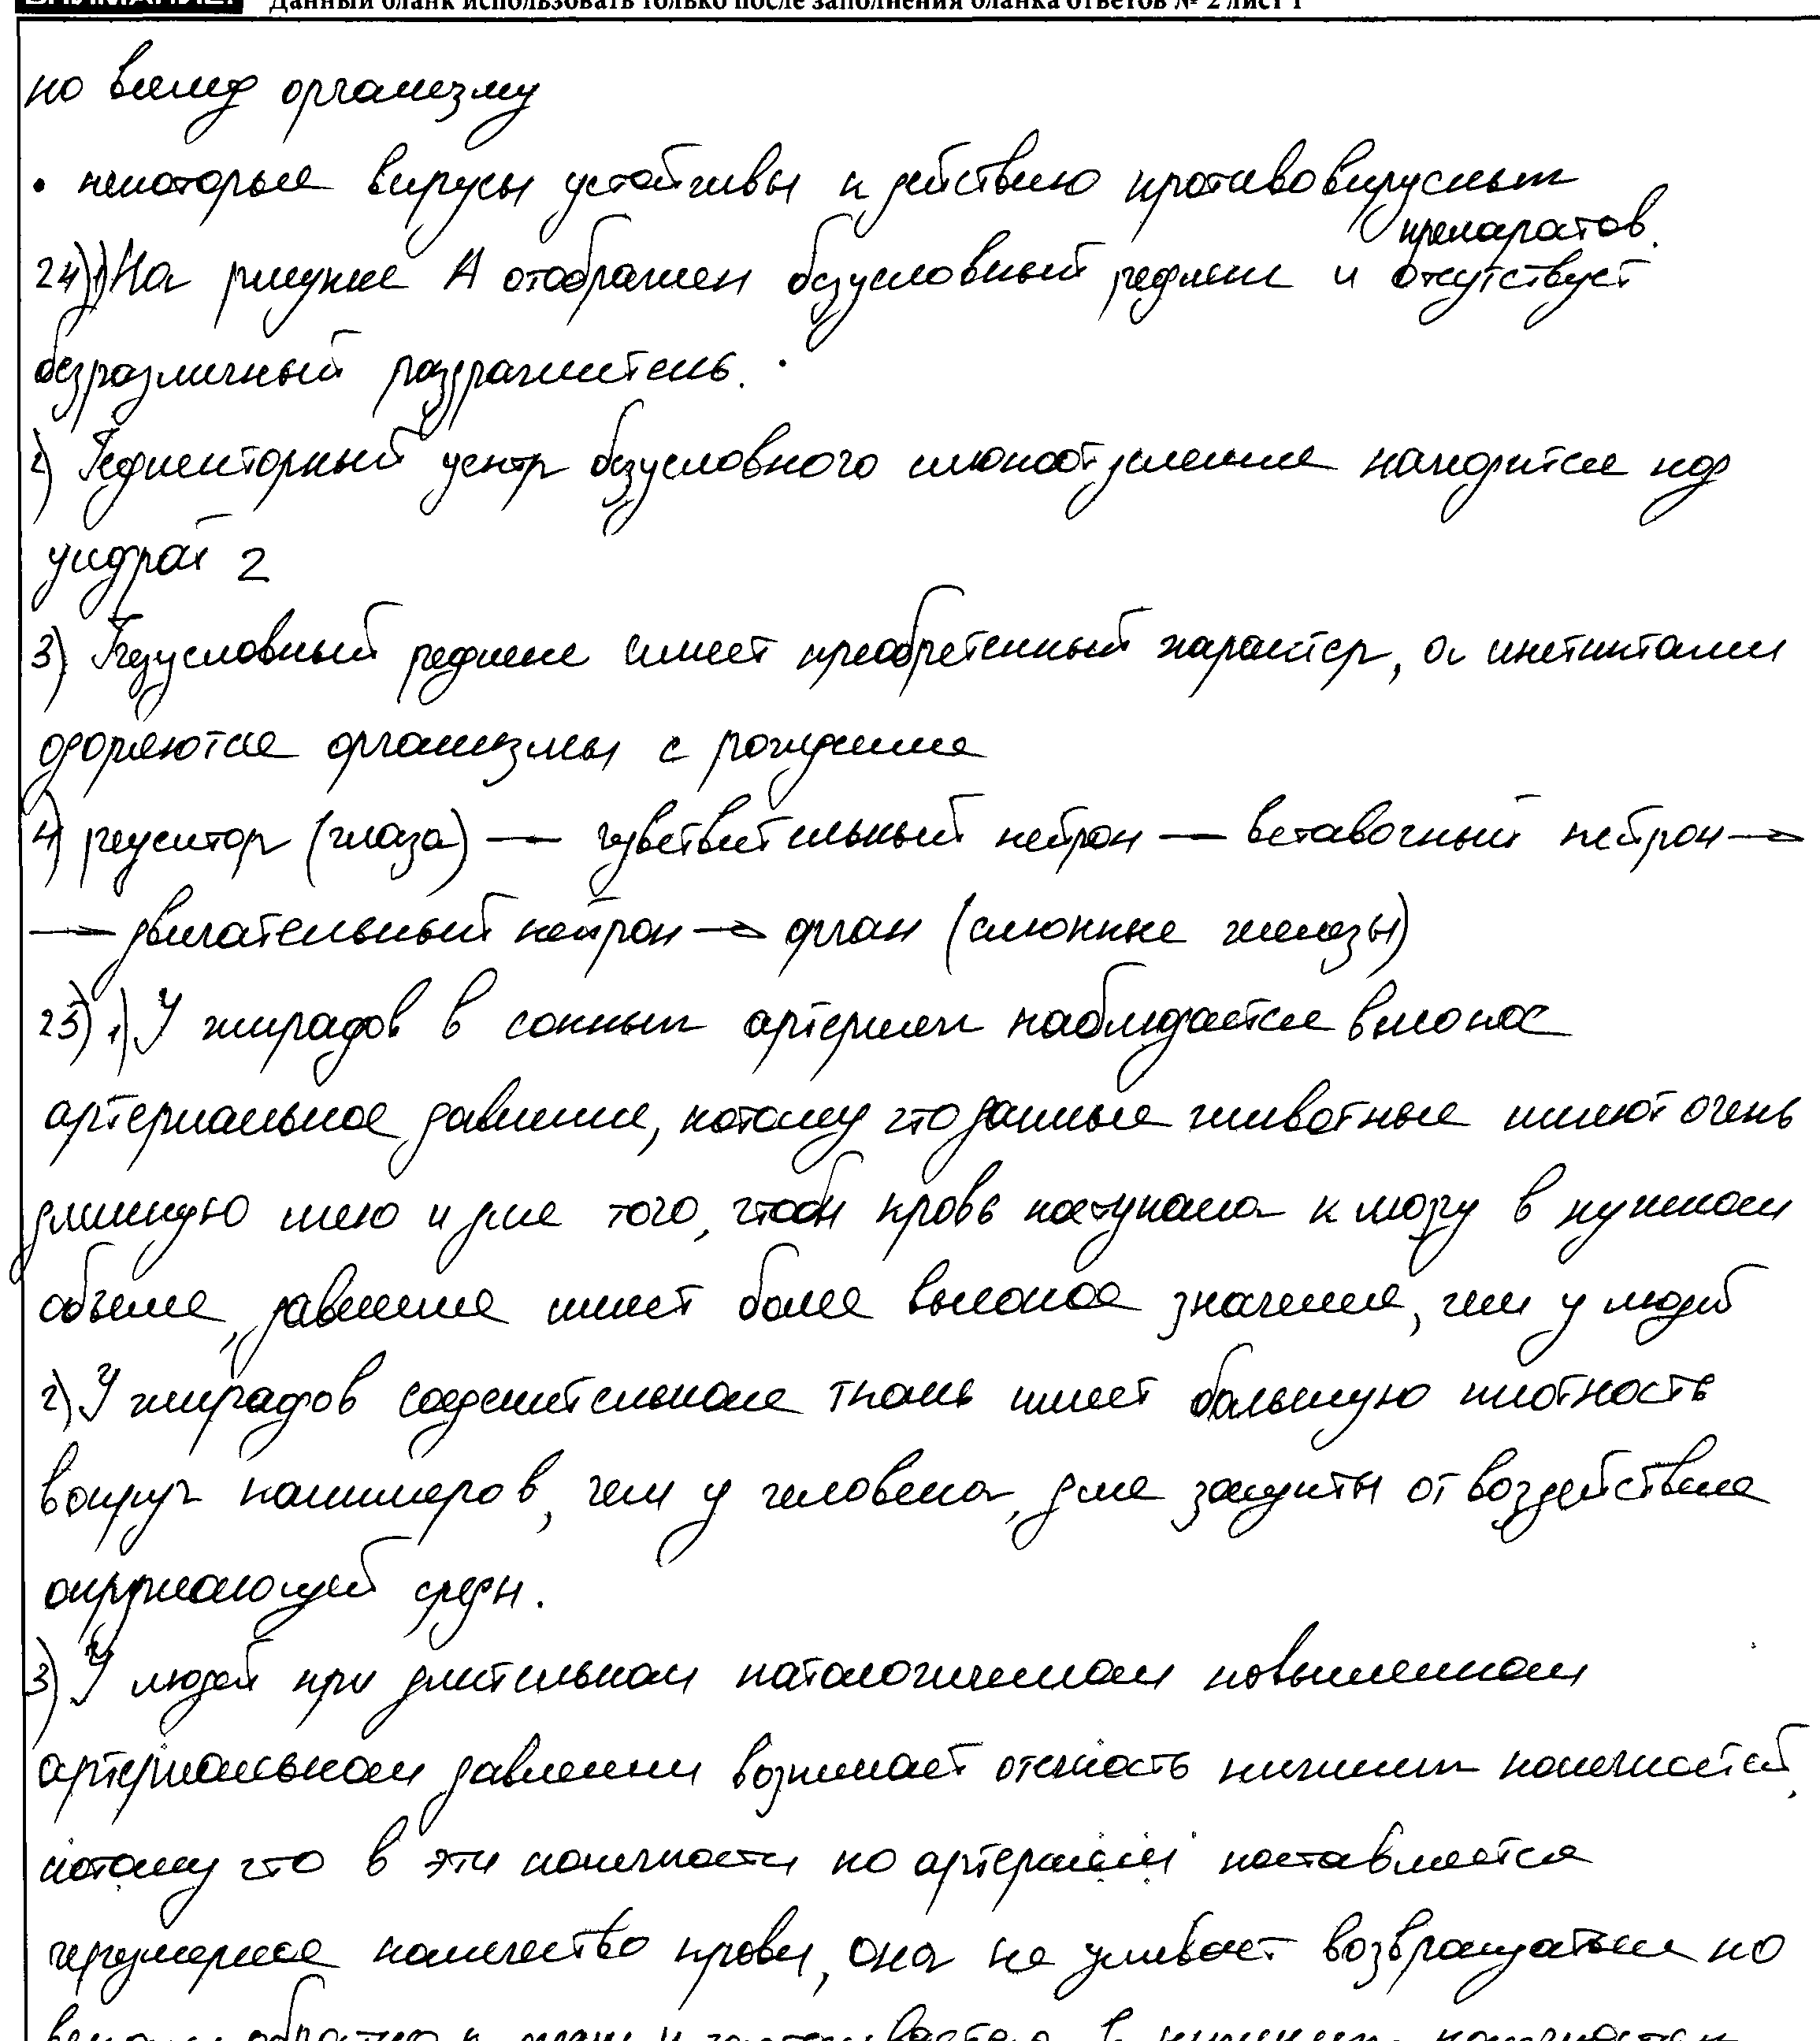 Данный бланк использовать только после заполнения бланка ответов № 2 лист 1
по всему организму
• некоторые вирусы устойчивы к действию противовирусных
препаратов.
24) 1) На рисунке А отображен безусловный рефлекс и отсутствует
безразличный раздражитель.
2) Рефлекторный центр безусловного слюноотделения находится под
цифрой 2
3) Безусловный рефлекс имеет приобретенный характер, а инстинктами
одоряются организмы с рождения
4) рецептор (глаза) — чувствительный нейрон — вставочный нейрон →
— двигательный нейрон → орган (слюнные железы)
25) 1) У жирафов в сонных артериях наблюдается высокое
артериальное давление, потому что данные животные имеют очень
длинную шею и для того, чтобы кровь поступала к мозгу в нужном
объеме, давление имеет более высокое значение, чем у людей
2) У жирафов соединительная ткань имеет большую плотность
вокруг капилляров, чем у человека, для защиты от воздействия
окружающей среды.
3) У людей при длительном патологическом повышенном
артериальном давлении возникает отечность нижних конечностей,
потому что в эти конечности по артериям поставляется
чрезмерное количество крови, она не успевает возвращаться по
обратно к и в нижних конечностях